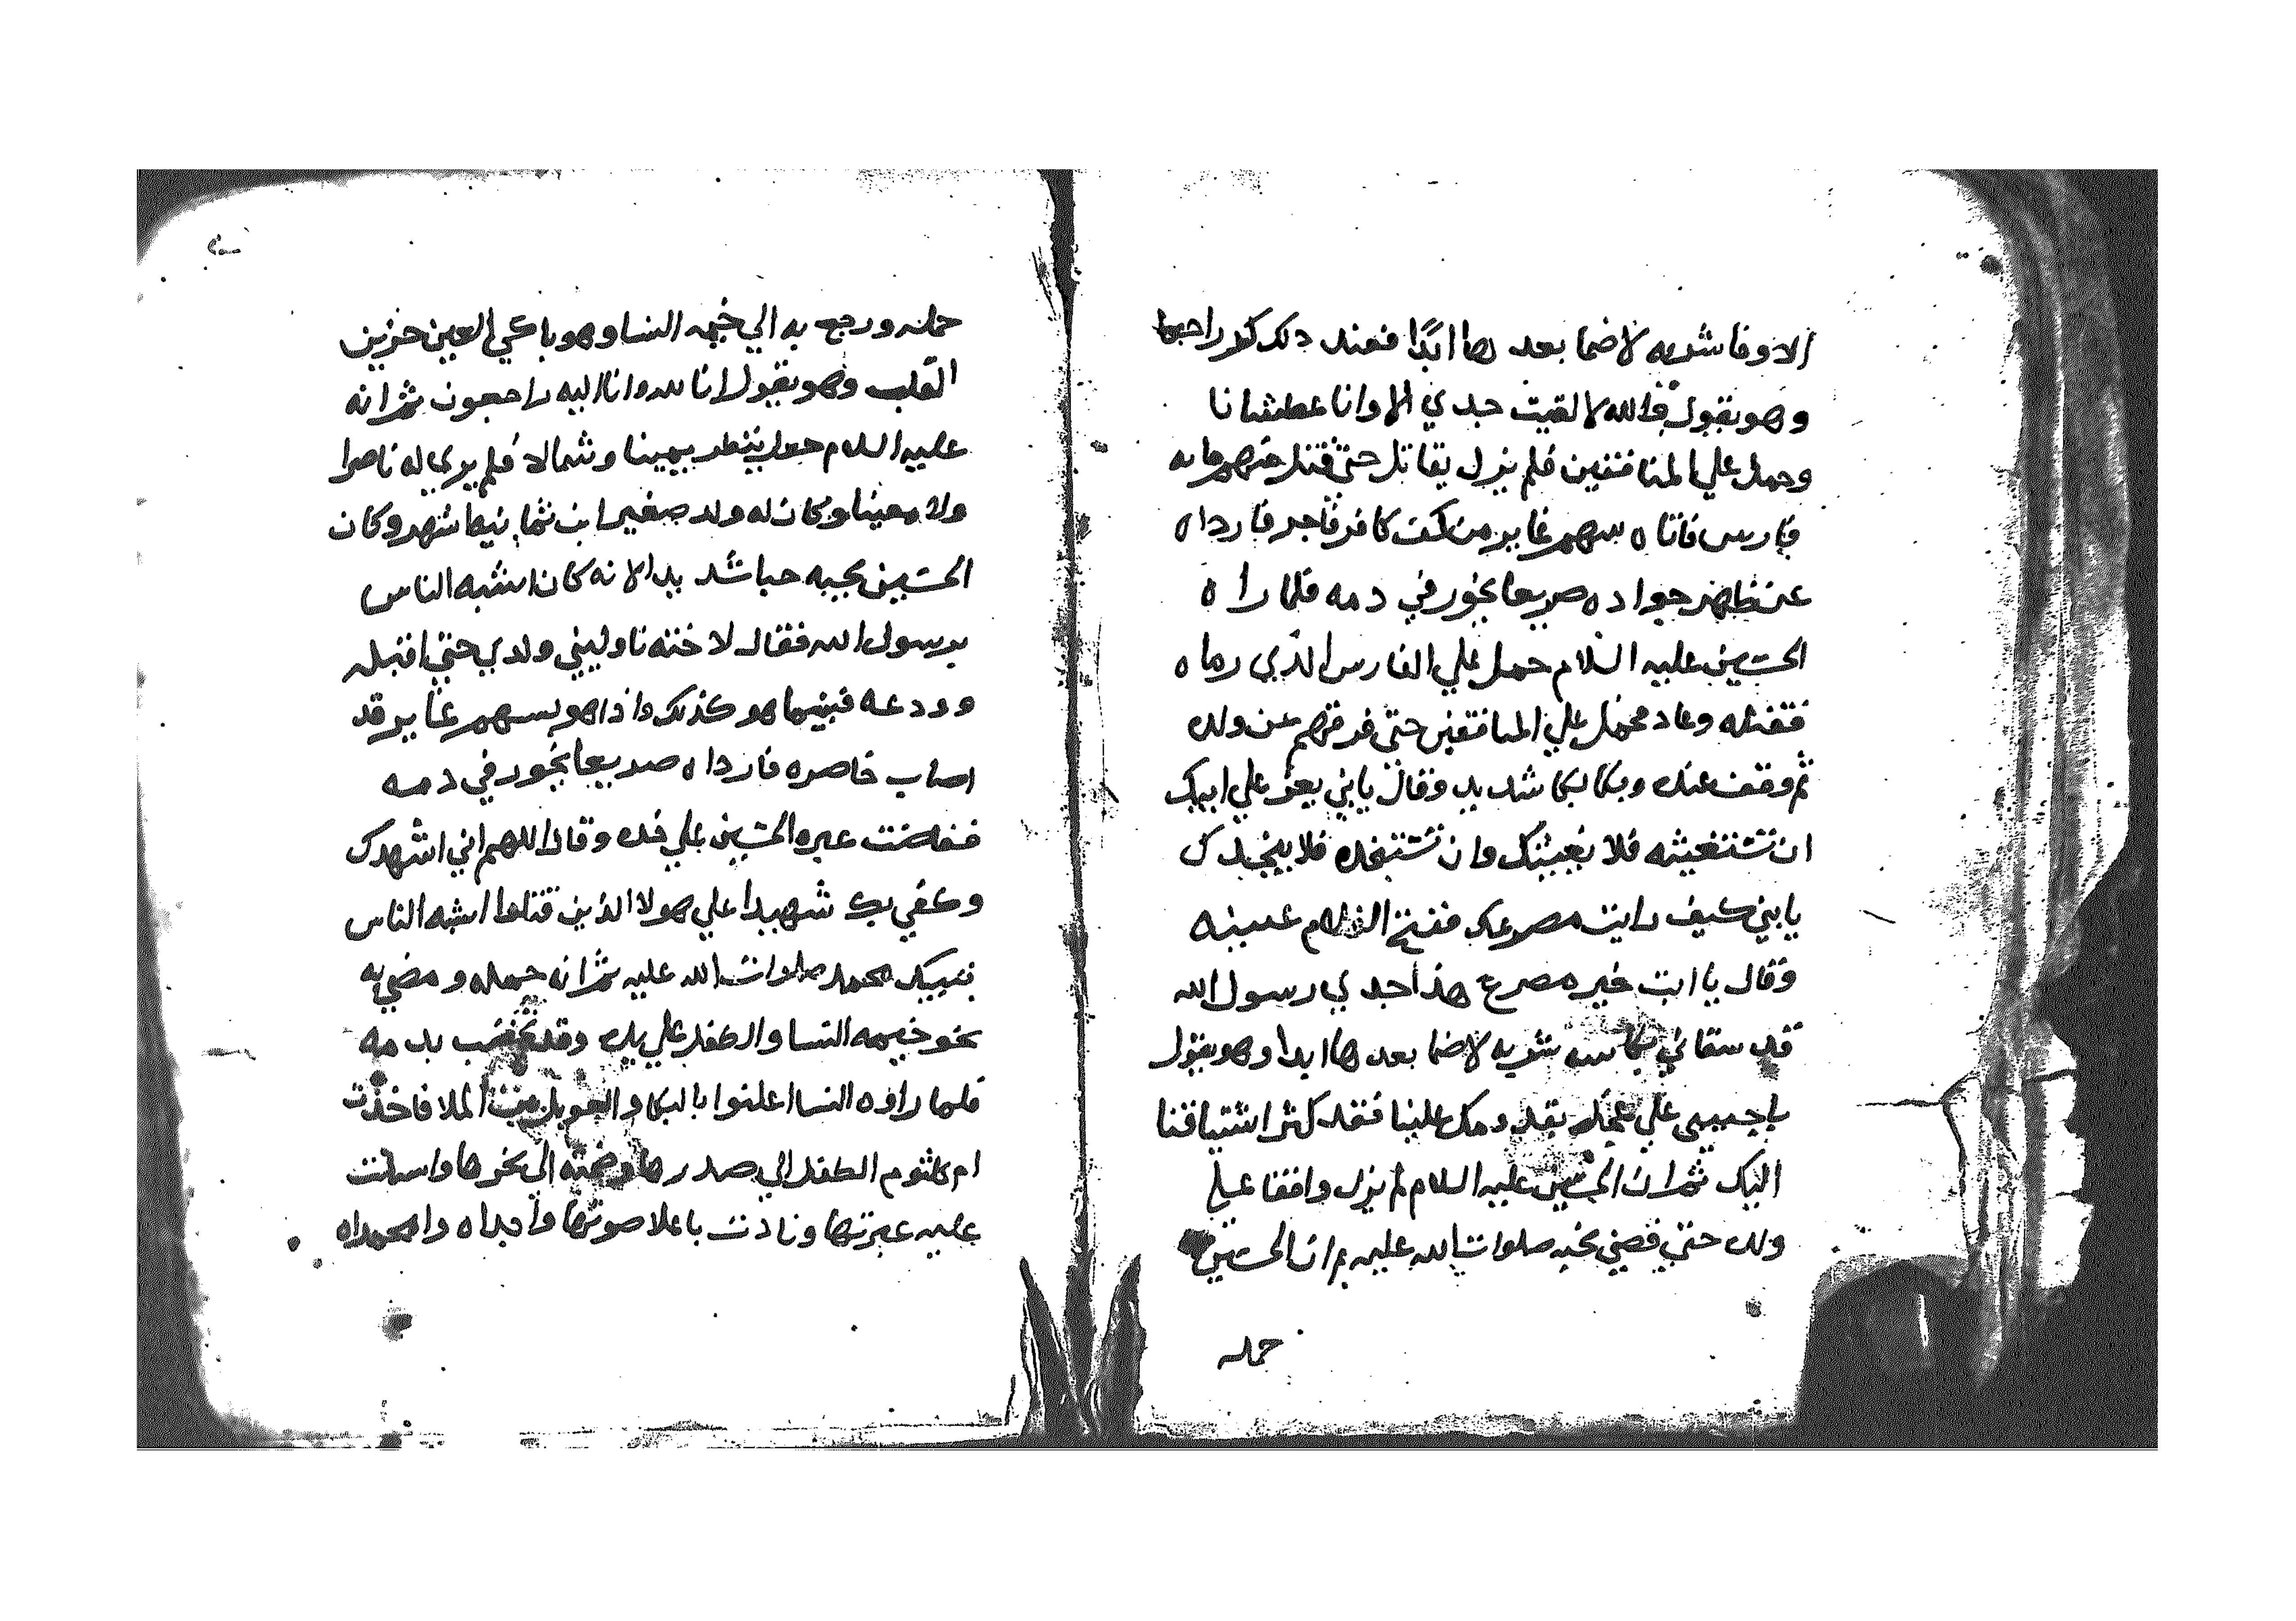 الاوفا شربه لاضما بعد ها ابدًا فعند دلك كر راجعا
وهو يقول فوالله لا لقيت جدي الا وانا عطشانا
وحمل علي المنافقين فلم يزل يقاتل حتي قتل منهم مايه
فارس فاتاه سهم غاير من كف كافر فاجر فارداه
عن ظهر جواده صريعا يخور في دمه فلما راه
الحسين عليه السلام حمل علي الفارس الذي رماه
فقتله وعاد محمل علي المنافقين حتي فرقهم عن ولده
ثم وقف عنده وبكا بكا شديد وقال يابني يعز علي ابيك
ان تستغيثه فلا يغيثك وان تستنجده فلا ينجدك
يابني كيف رايت مصرعك ففتح الغلام عينيه
وقال يا ابت خير مصرع هذا جدي رسول الله
قد سقاني بكاسه شربه لاضما بعد ها ابدا وهو يقول
ياحبيبي علي عجل بقدومك علينا فقد كثر اشتياقنا
اليك ثم ان الحسين عليه السلام لم يزل واقفا علي
ولده حتي قضي نحبه صلوات الله عليه ثم ان الحسين
حمله
حمله ورجع به الي خيمه النسا وهو باكي العين حزين
القلب وهو يقول انا لله وانا اليه راجعون ثم انه
عليه السلام جعل ينظر يمينا وشمالا فلم يري له ناصرا
ولا معينا وكان له ولد صغير ابن ثمانيها شهر وكان
الحسين يحبه حبا شديدا لانه كان اشبه الناس
برسول الله فقال لاخته ناوليني ولدي حتي اقبله
وودعه فبينما هو كذلك واذا هو بسهم غاير وقد
اصاب خاصره فارداه صريعا يخور في دمه
ففاضت عبره الحسين علي خده وقال اللهم اني اشهدك
وكفي بك شهيدا علي هولا الذين قتلوا اشبه الناس
بنبيك محمد صلوات الله عليه ثم انه حمله ومضي به
نحو خيمه النسا والطفل علي يده وقد تخضب بدمه
فلما راوه النسا اعلنوا بالبكا والعويل بين الملا فاخذت
ام كلثوم الطفل الي صدرها وضمته الي نحرها واسبلت
عليه عبرتها ونادت باعلا صوتها واجداه وامحمداه